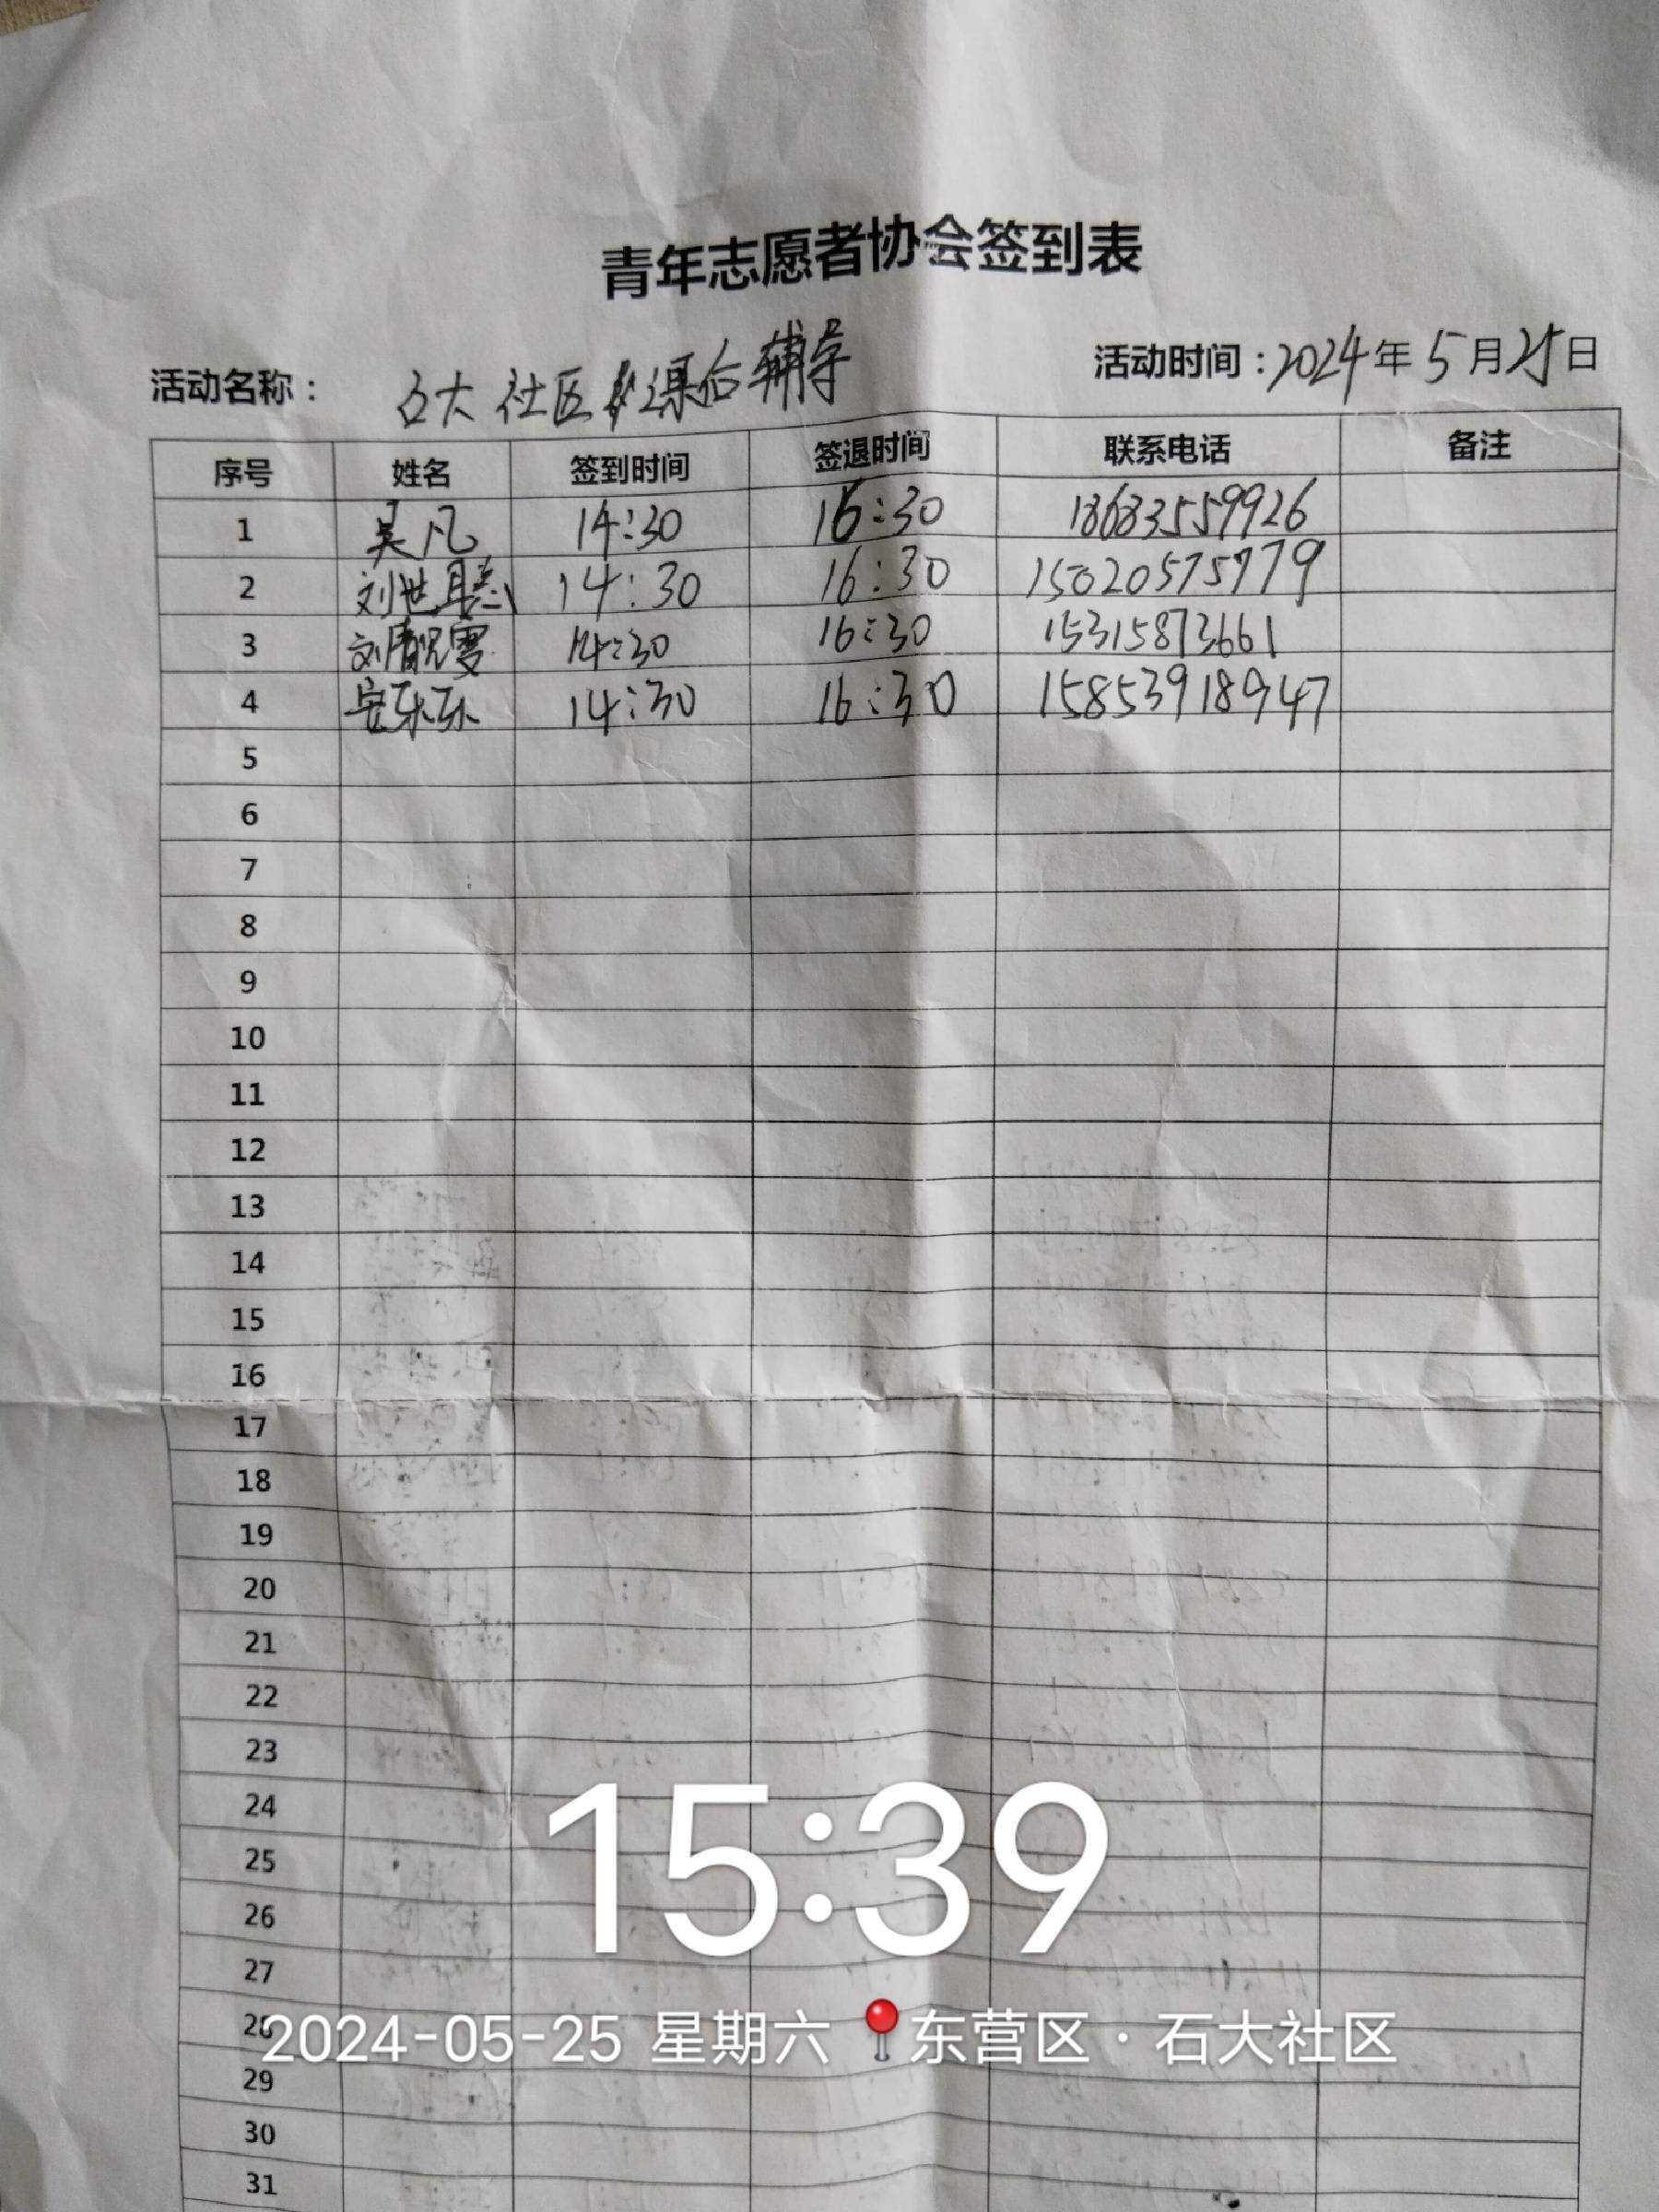 青年志愿者协会签到表
活动名称： 石大社区课后辅导 活动时间：2024年5月25日
序号 姓名 签到时间 签退时间 联系电话 备注
1 吴凡 14:30 16:30 18683559926
2 刘世聪 14:30 16:30 15020575779
3 刘 雯 14:30 16:30 15315873661
4 安乐乐 14:30 16:30 15853918947
5
6
7
8
9
10
11
12
13
14
15
16
17
18
19
20
21
22
23
24
25
26
27
28
29
30
31
15:39
2024-05-25 星期六 东营区·石大社区